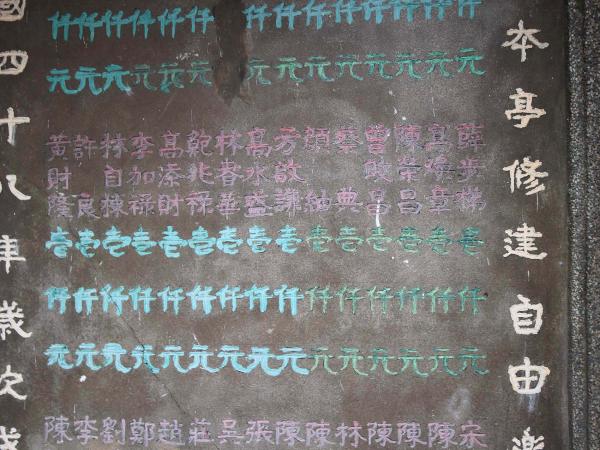 本亭修建自由
仟元 薛步梯 壹仟元 宋
仟元 高煥章 壹仟元 陳
仟元 陳榮昌 壹仟元 陳
仟元 曾昌 壹仟元 陳
仟元 蔡典 壹仟元 林
仟元 顏紳 壹仟元 陳
仟元 方啟謙 壹仟元 陳
仟元 高水盛 壹仟元 張
林春華 壹仟元 吳
仟元 鮑兆祿 壹仟元 莊
仟元 高添財 壹仟元 趙
仟元 李加祿 壹仟元 鄭
仟元 林自棟 壹仟元 劉
仟元 許良 壹仟元 李
仟元 黃財隆 壹仟元 陳
國四十八年歲次戊